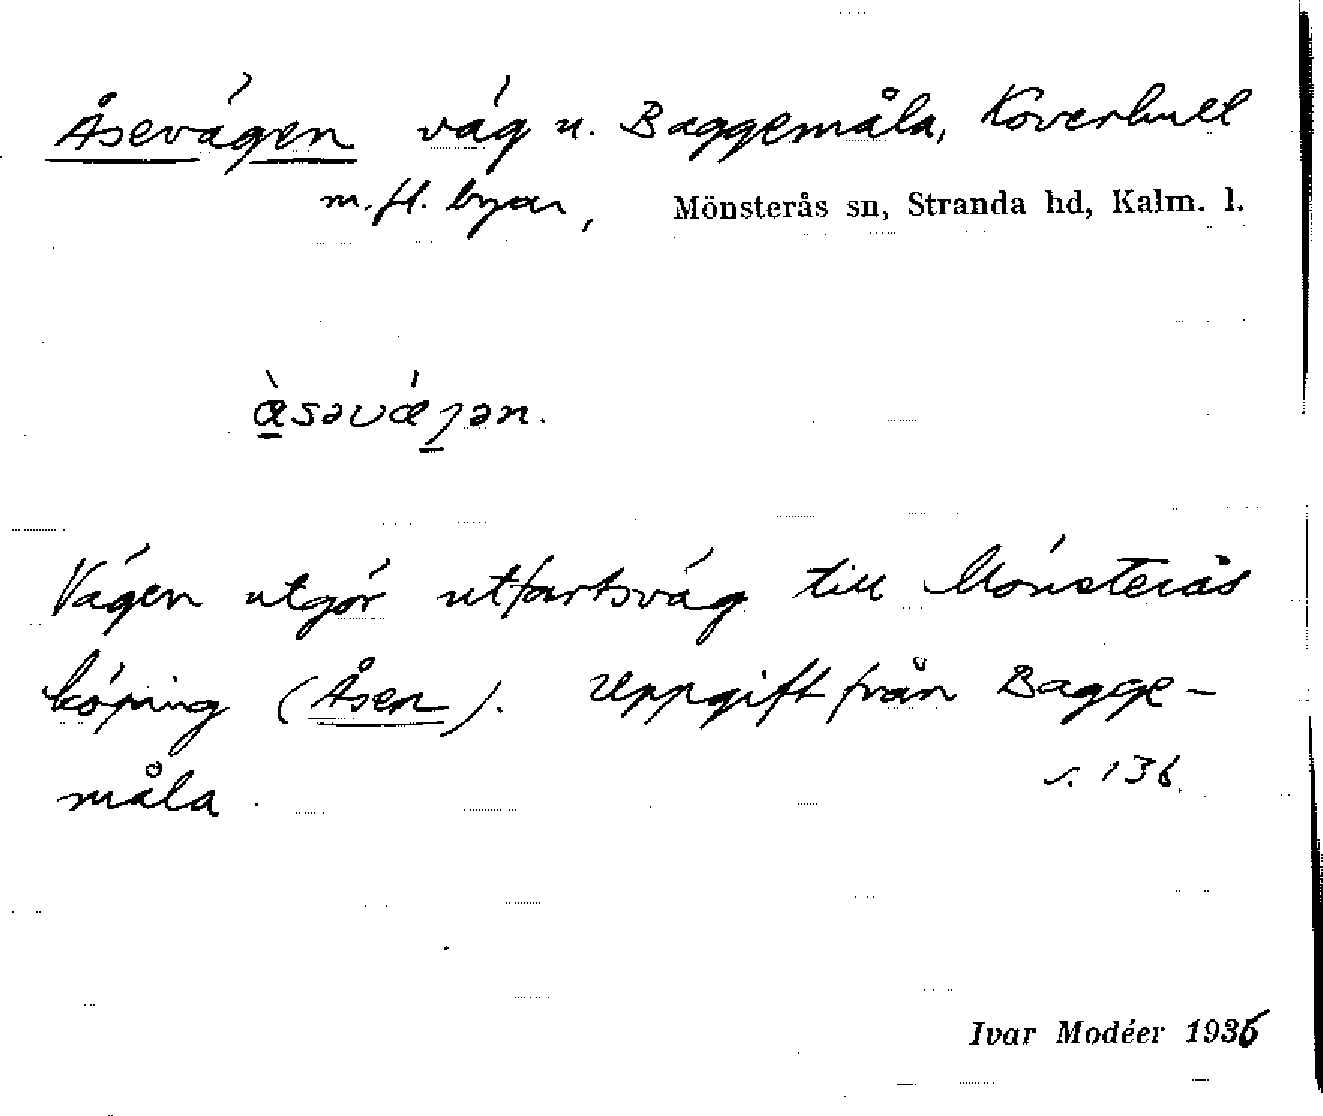 Åsevägen väg u. Baggemåla, Koverhult
m. fl. byar, Mönsterås sn, Stranda hd, Kalm. l.
Vägen utgör utfartsväg till Mönsterås
köping (Åsen). Uppgift från Bagge-
måla.
s. 136.
Ivar Modéer 1936